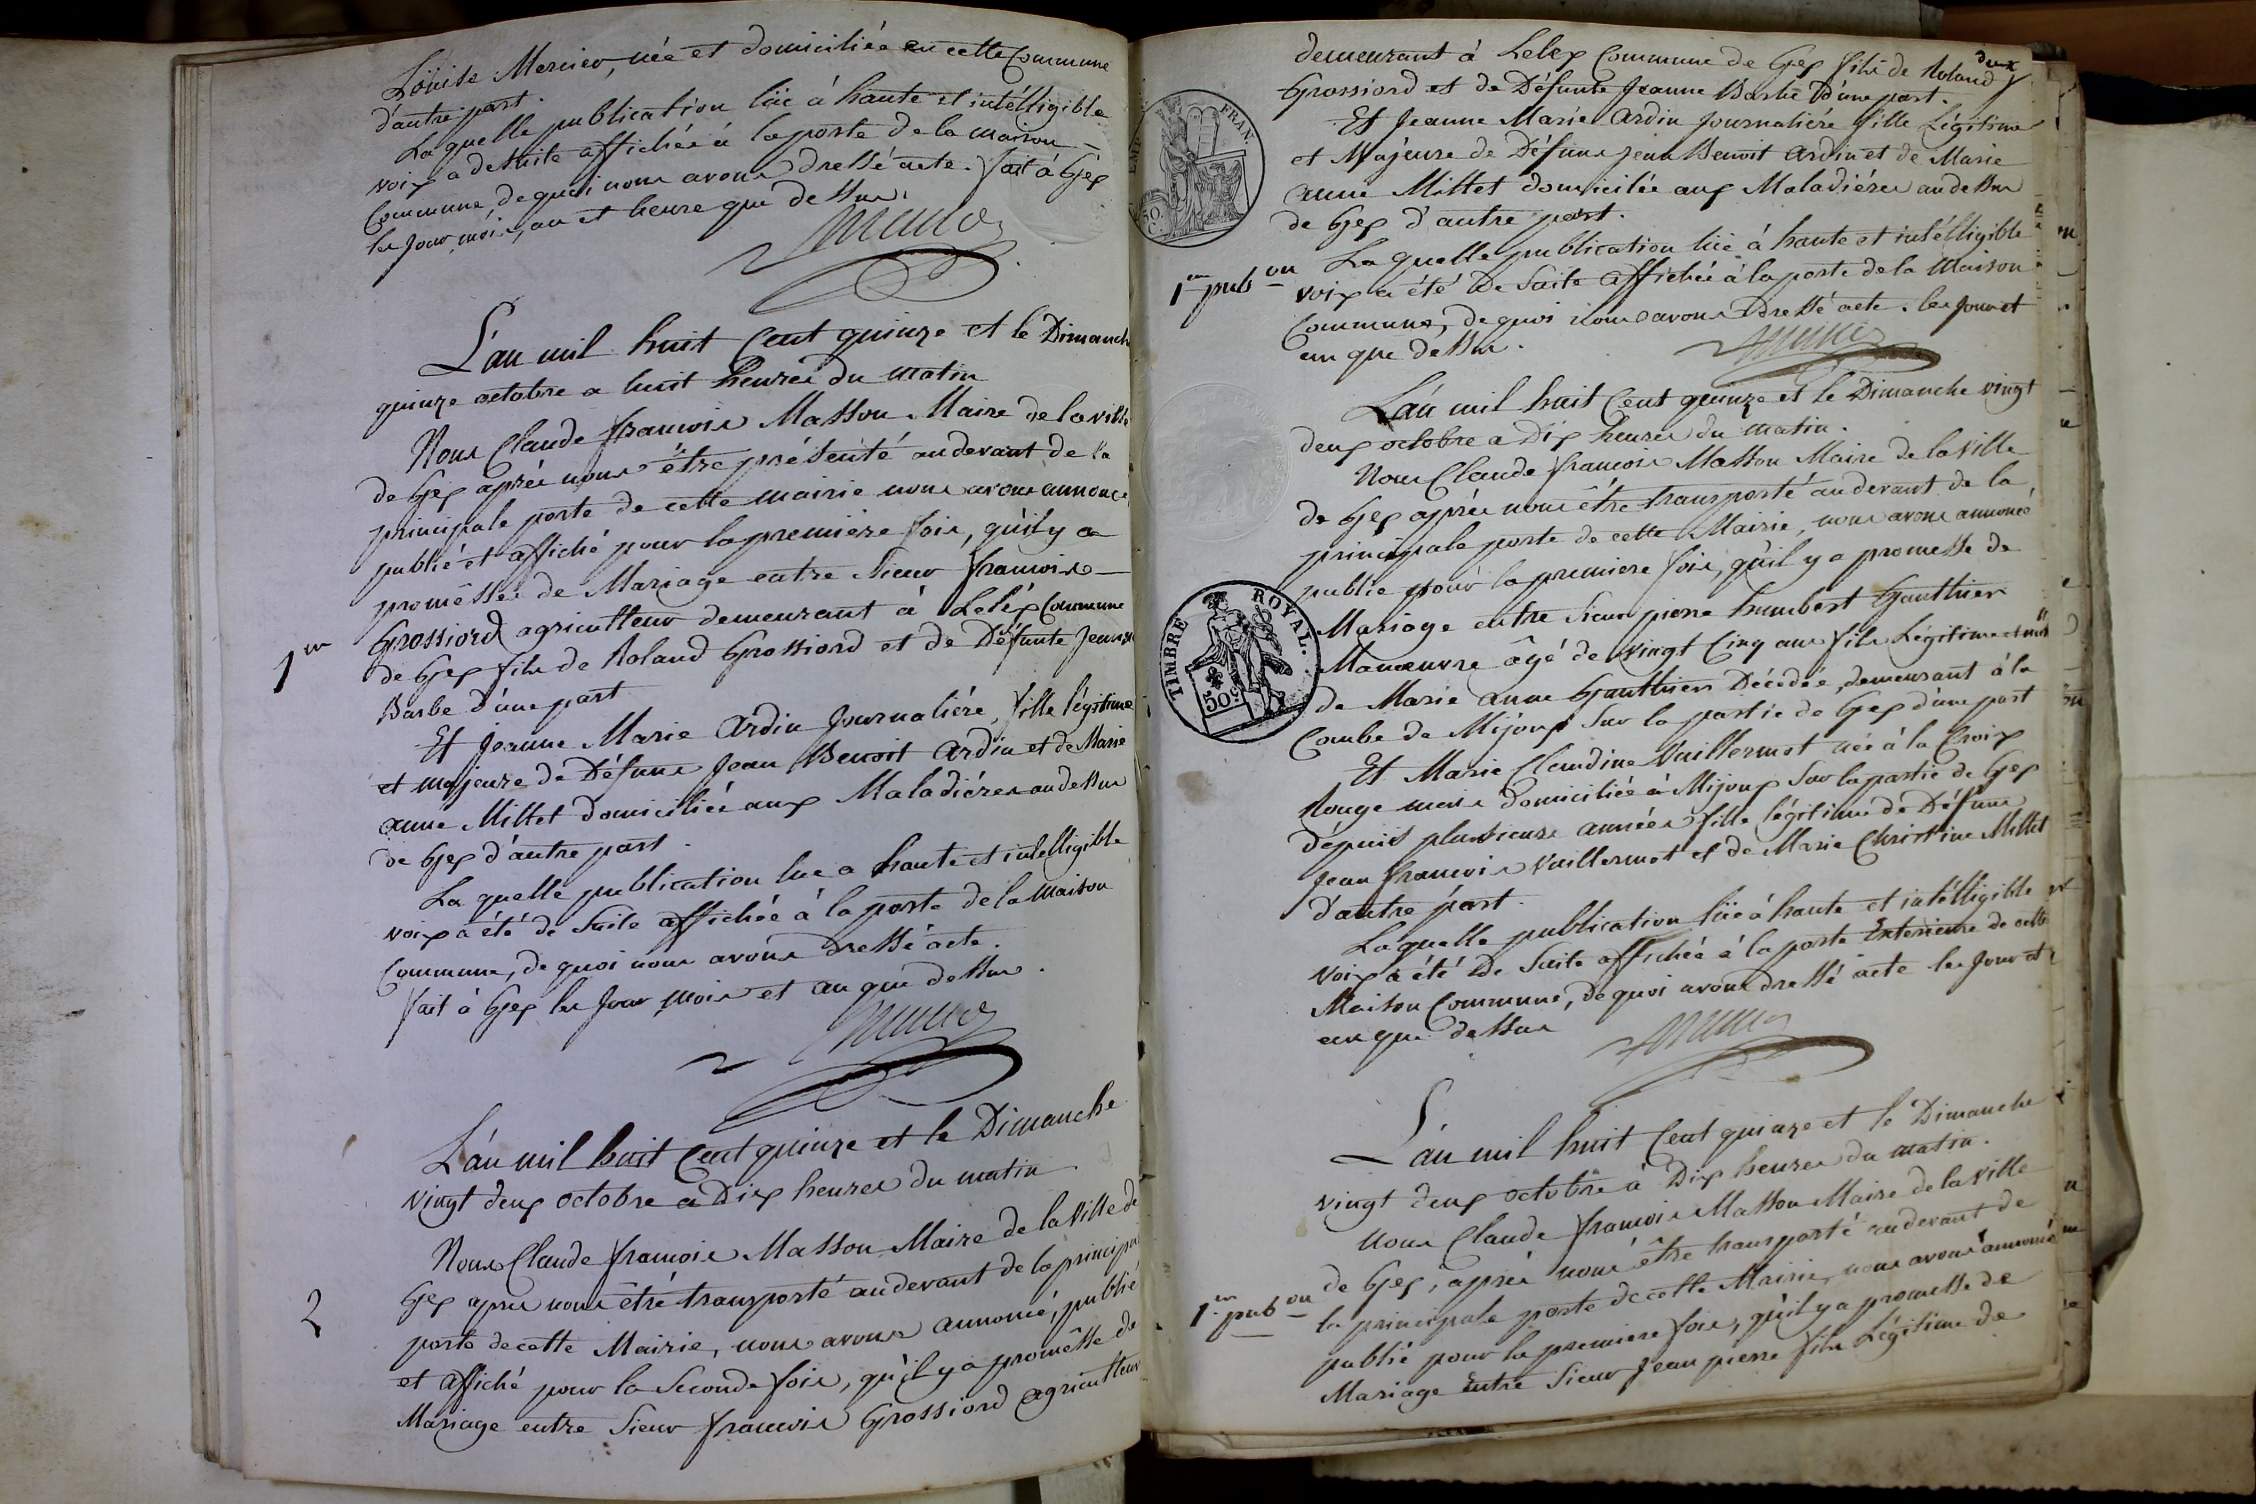 Louise Mercier, née et domiciliée en cette Commune
d'autre part.
La quelle publication lüe à haute et intélligible
voix a de suite affichée à la porte de la maison
Commune, de quoi nous avons dressé acte. fait à Gex
les jour, mois, an et heure que dessus.
L'an mil huit Cent quinze et le Dimanche
quinze octobre a huit heures du matin
Nous Claude françois Masson Maire de la ville
de Gex après nous être présenté au devant de la
principale porte de cette mairie nous avons annoncé
publié et affiché pour la première fois, qu'il y a
promêsse de Mariage entre Sieur françois
1er
Grossiord agriculteur demeurant à Leléx Commune
de Gex fils de Roland Grossiord et de Défunte Jeanne
Barbe d'une part
Et Jeanne Marie Ardin Journalière, fille légitime
et majeure de Défunt Jean Benoit Ardin et de Marie
anne Millet domiciliée aux Maladières au dessus
de Gex d'autre part.
La quelle publication lue a haute et intelligible
voix a été de suite affichée à la porte de la Maison
Commune, de quoi nous avons dressé acte.
fait à Gex les Jour mois et an que dessus.
L'an mil huit Cent quinze et le Dimanche
vingt deux octobre a Dix heures du matin
Nous Claude françois Masson Maire de la Ville de
Gex apres nous être transporté au devant de la principa
2
porte de cette Mairie, nous avons annoncé, publié
et affiché pour la Seconde fois, qu'il y a promêsse de
Mariage entre Sieur françois Grossiord agriculteur
deux
demeurant à Lelex Commune de Gex fils de Roland
Grossiord et de Défunte Jeanne Barbe d'une part.
EMP FRAN.
50. C.
Et Jeanne Marie Ardin Journalière fille Légitime
et Majeure de Défunt Jean Benoit Ardin et de Marie
anne Millet domiciliée aux Maladières au dessus
de Gex d'autre part.
1ere pubon
La quelle publication lüe à haute et intélligible
voix a été de Suite affichée à la porte de la Maison
Commune, de quoi nous avons dressé acte. les Jour et
an que dessus.
L'an mil huit Cent quinze et le Dimanche vingt
deux octobre a Dix heures du matin.
Nous Claude françois Masson Maire de la Ville
de Gex après nous être transporté au devant de la
principale porte de cette Mairie, nous avons annoncé
publie pour la premiere fois, qu'il y a promesse de
Mariage entre Sieur pierre humbert Gauthier
TIMBRE ROYAL.
50c
Manœuvre âgé de vingt Cinq ans fils Légitime et
de Marie Anne Gauthier Décédée, demeurant à la
Combe de Mijoux Sur la partie de Gex d'une part
Et Marie Claudine Vuillermot née à la Croix
Rouge mais domiciliée à Mijoux Sur la partie de Gex
dépuis plusieurs années fille légitime de Défunt
Jean françois Vuillermot et de Marie Christine Millet
d'autre part.
La quelle publication lüe à haute et intélligible
voix a été de Suite affichée à la porte Extérieure de cette
Maison Commune, de quoi avons dressé acte les Jour et
an que dessus
L'an mil huit Cent quinze et le Dimanche
vingt deux octobre à Dix heures du matin.
Nous Claude françois Masson Maire de la Ville
de Gex, après nous être transporté au devant de
1ere pubon
la principale porte de cette Mairie, nous avons annoncé
publié pour la premiere fois, qu'il y a promesse de
Mariage Entre Sieur Jean pierre fils Légitime de